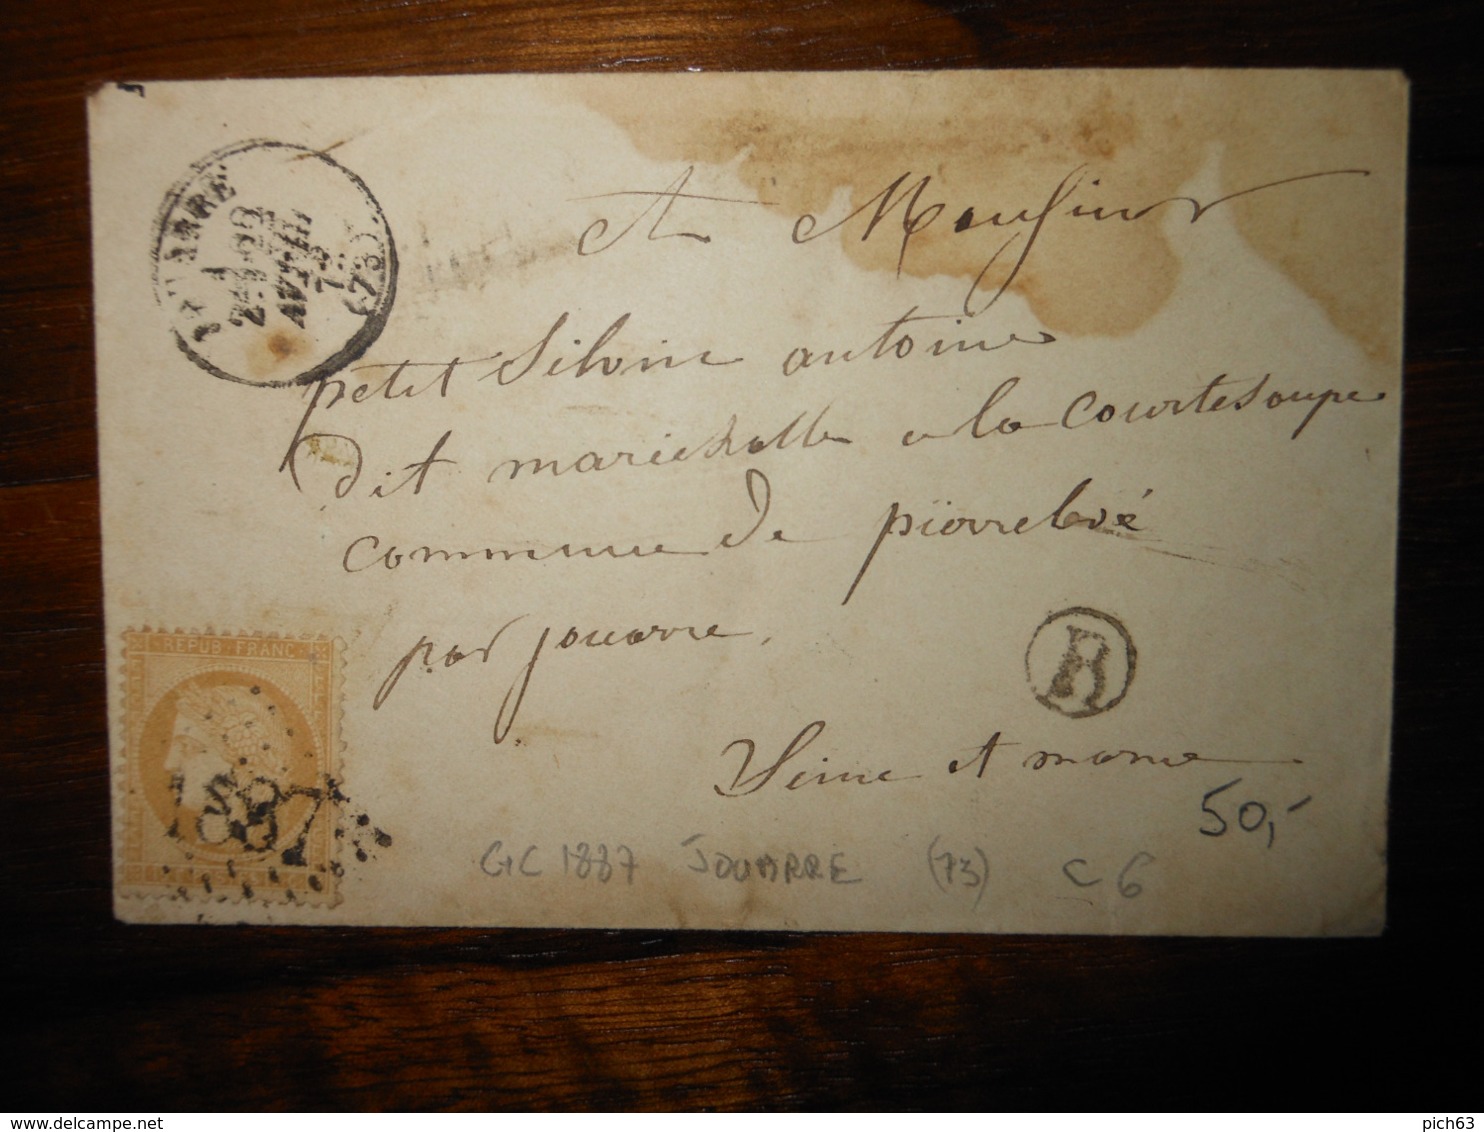 JOUARRE
AVRIL
73
(73)
A Monsieur
petit Silvin antoine
dit marichalle a la courtesoupe
commune de pierrelevé
par jouarre,
R
Seine et marne
REPUB FRANC
1887
50,-
GC 1887 JOUARRE (73) C 6
delcampe.net
pich63